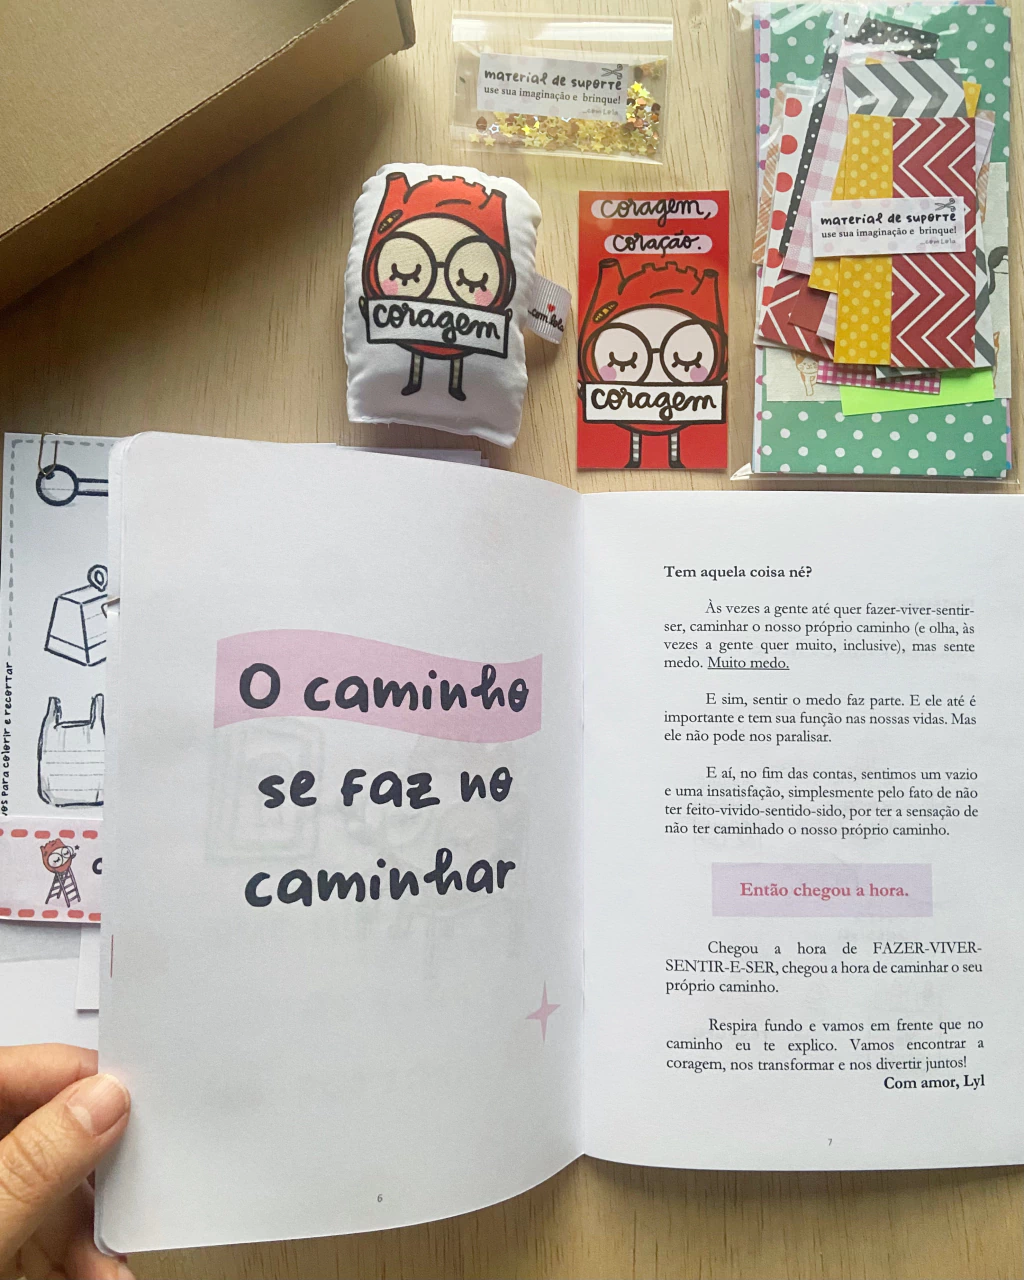 material de suporte
use sua imaginação e brinque!
...com Lola
coragem
...com.lola
coragem,
coração.
coragem
material de suporte
use sua imaginação e brinque!
...com Lola
para colorir e recortar
O caminho
se faz no
caminhar
6
Tem aquela coisa né?
Às vezes a gente até quer fazer-viver-sentir-
ser, caminhar o nosso próprio caminho (e olha, às
vezes a gente quer muito, inclusive), mas sente
medo. Muito medo.
E sim, sentir o medo faz parte. E ele até é
importante e tem sua função nas nossas vidas. Mas
ele não pode nos paralisar.
E aí, no fim das contas, sentimos um vazio
e uma insatisfação, simplesmente pelo fato de não
ter feito-vivido-sentido-sido, por ter a sensação de
não ter caminhado o nosso próprio caminho.
Então chegou a hora.
Chegou a hora de FAZER-VIVER-
SENTIR-E-SER, chegou a hora de caminhar o seu
próprio caminho.
Respira fundo e vamos em frente que no
caminho eu te explico. Vamos encontrar a
coragem, nos transformar e nos divertir juntos!
Com amor, Lyl
7